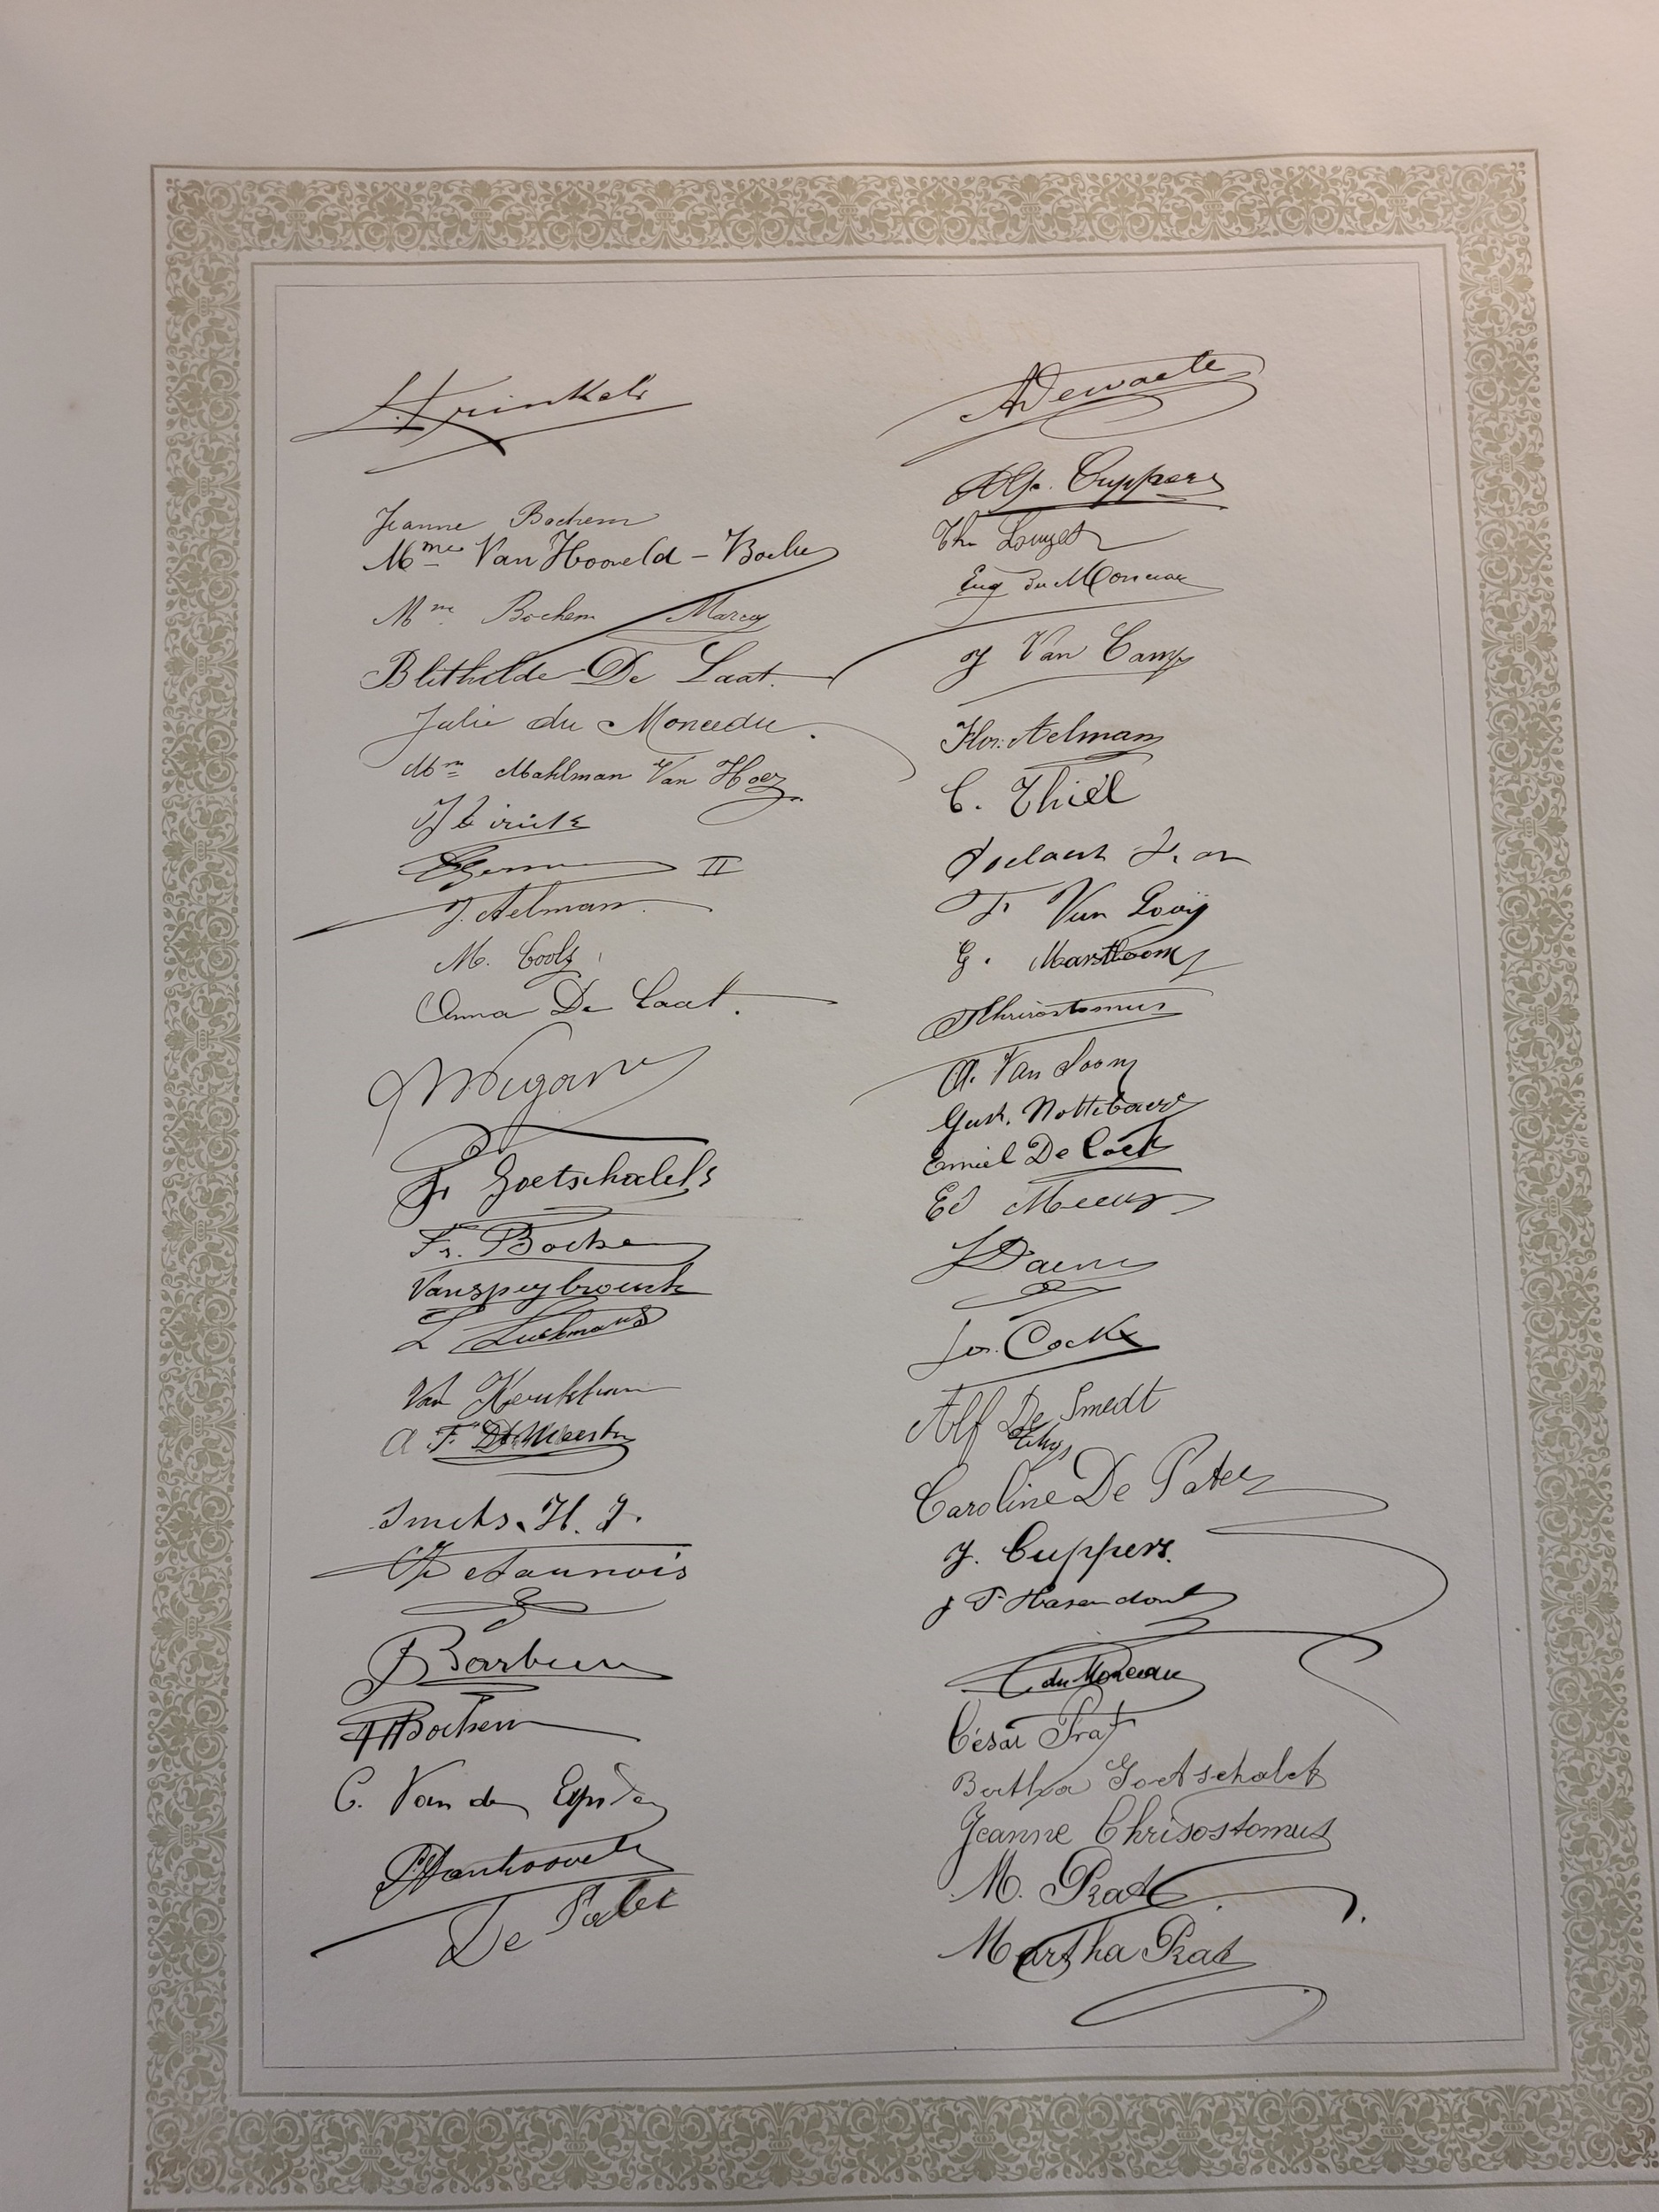 Jeanne Bochem
Mme Van Hooveld - Boche
Mme Bochem Marcy
Blithilde De Laat.
Julie du Monceau.
Mme Mahlman Van Hoey
II
J. Aelman.
M. Cools
Anna De Laat.
F. Goetschalcks
Fr. Boche
Vanspeybrouck
L Luckmans
Van
A F. De Weerdt
Smets. H. J.
Delaunois
Bochem
C. Van den Eynden
De Pater
A Dewaele
Alp. Cuppers
Th. Louyet
Eug du Monceau
J Van Camp
Flor. Aelman
C. Thiel
Jean
F. Van Looÿ
G. Marstboom
Chrisostomus
A. Van Loon
Gust. Nottebaere
Emiel De Cock
Ed Meeus
J Daems
Jos. Cockx
Alf De Smedt
Thys
Caroline De Pater
J. Cuppers.
J F Hasendonk
C du Monceau
César Prat
Bertha Goetschalck
Jeanne Chrisostomus
M. Prat.
Martha Prat